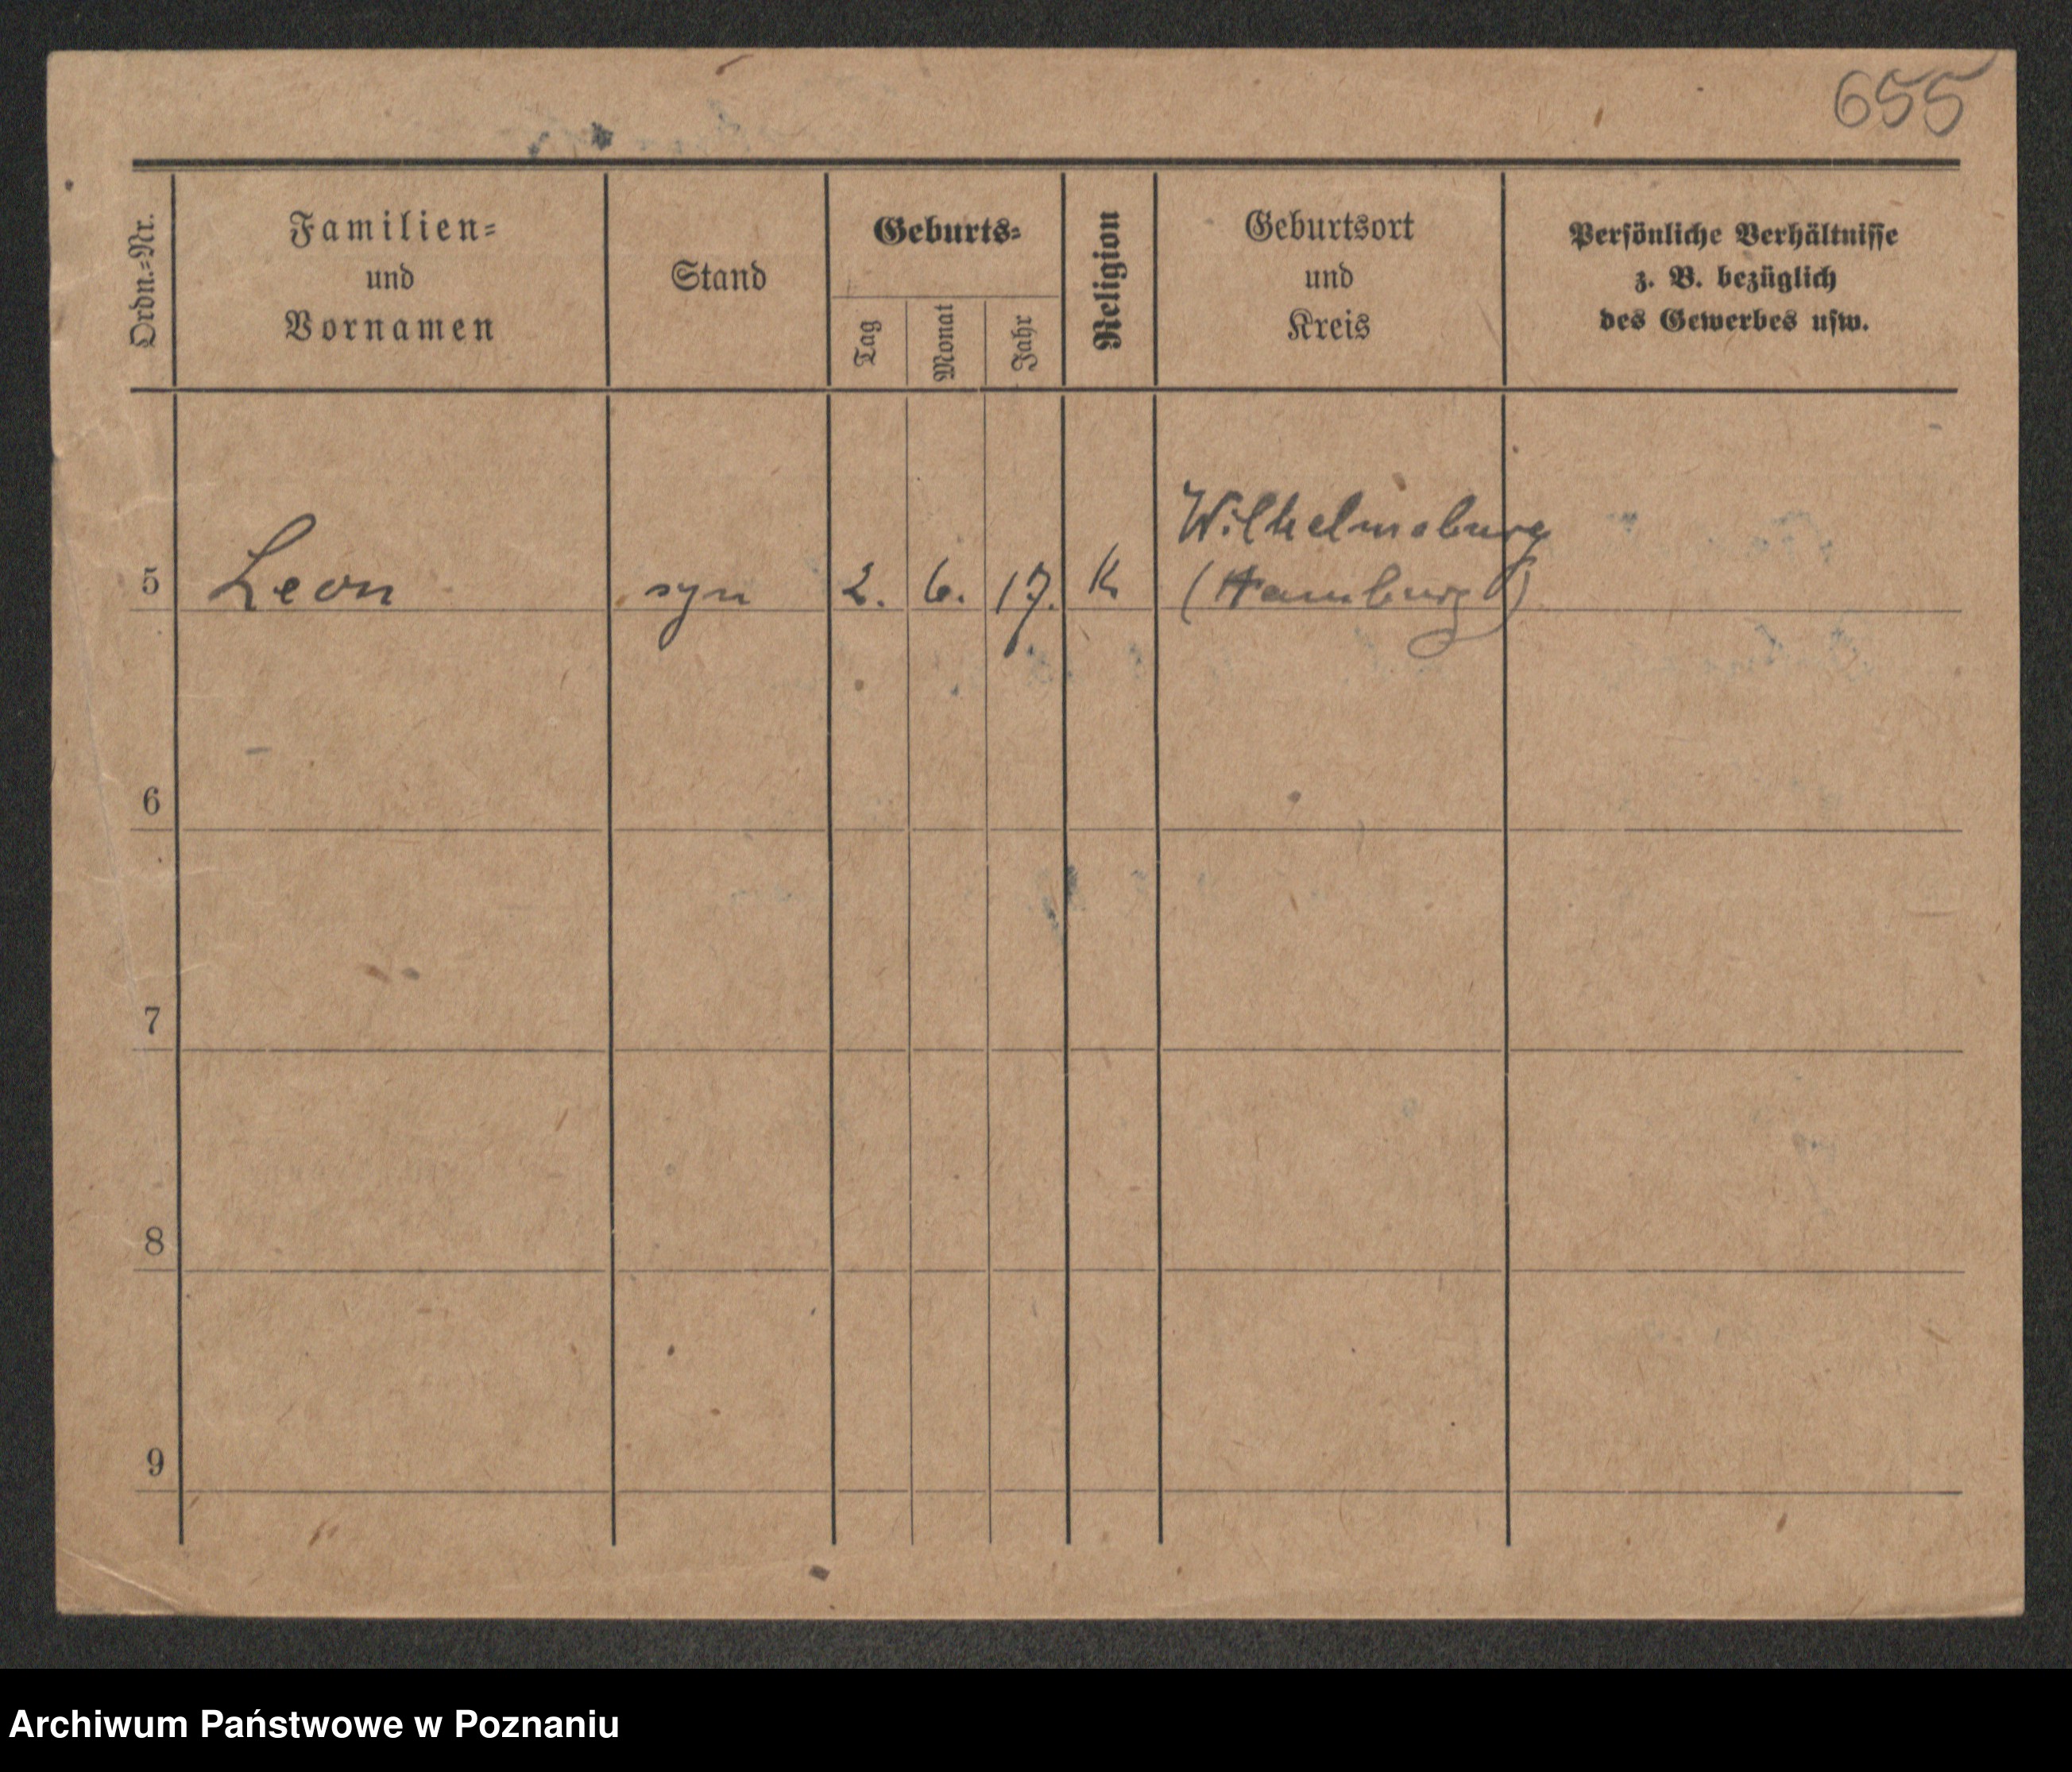 655
Ordn.-Nr.
Familien-
und
Vornamen
Stand
Geburts-
Tag
Monat
Jahr
Religion
Geburtsort
und
Kreis
Persönliche Verhältnisse
z. B. bezüglich
des Gewerbes usw.
Wilhelmsburg
5 Leon syn 2. 6. 17. K (Hamburg)
6
7
8
9
Archiwum Państwowe w Poznaniu